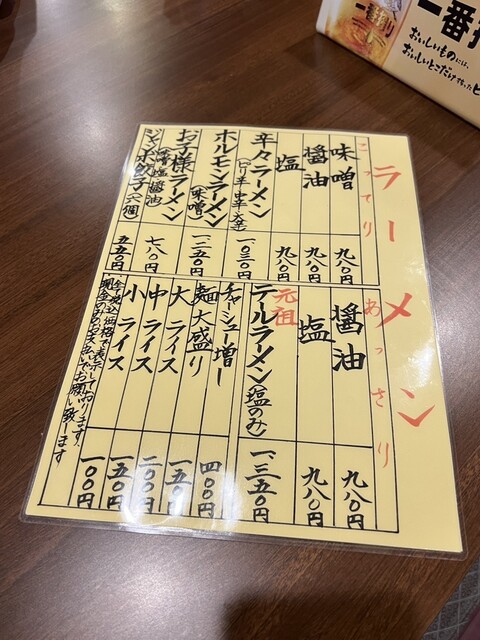 ラーメン
こってり
味噌 九八〇円
醤油 九八〇円
塩 九八〇円
辛々ラーメン(ピリ辛 中辛 大辛) 一、〇三〇円
ホルモンラーメン(味噌) 一、二五〇円
お子様ラーメン(味噌 塩 醤油) 七八〇円
ジャンボ餃子(六個) 五五〇円
あっさり
醤油 九八〇円
塩 九八〇円
元祖
テルラメン(塩のみ) 一、三五〇円
チャーシュー増し 四〇〇円
麺大盛り 一五〇円
大ライス 二〇〇円
中ライス 一五〇円
小ライス 一〇〇円
全て税込価格で表示しております。
現金のみお支払でお願い致します
一番搾り
一番
おいしいものには、
おいしいとこだけ